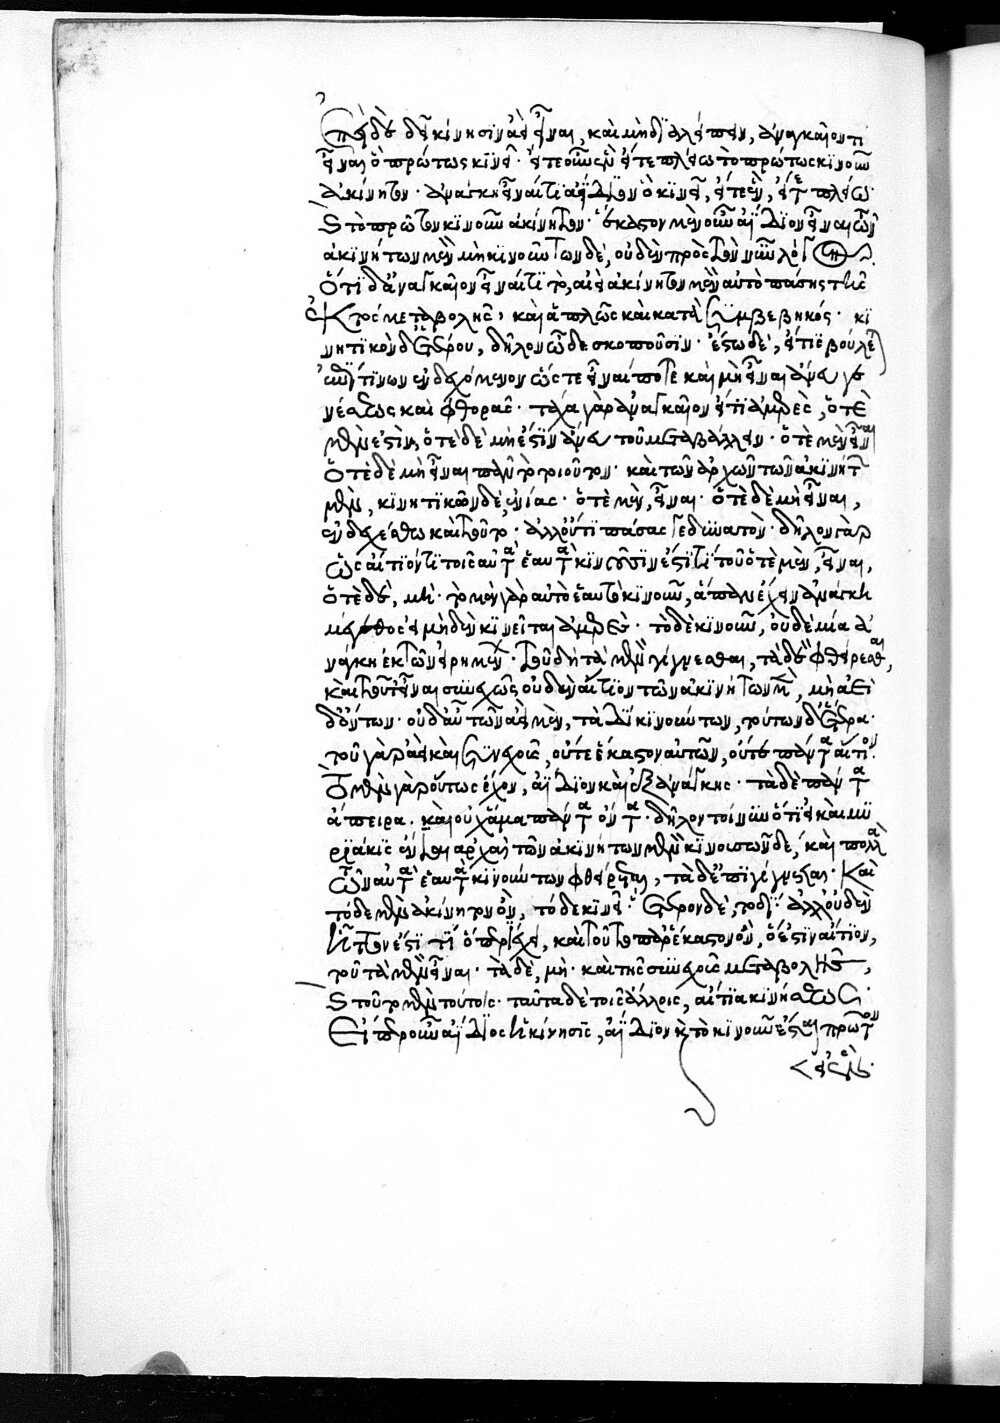 Ἐπεὶ δὲ δεῖ κίνησιν ἀεὶ εἶναι, καὶ μὴ διαλείπειν, ἀναγκαῖόν τι
εἶναι ὃ πρώτως κινεῖ· εἴτε οὖν ἓν εἴτε πλείω τὸ πρώτως κινοῦν
ἀκίνητον· ἀνάγκη εἶναί τι ἀΐδιον ὃ κινεῖ, εἴτε ἓν, εἴτε πλείω·
καὶ τὸ πρῶτον κινοῦν ἀκίνητον· ἕκαστον μὲν οὖν ἀΐδιον εἶναι τῶν
ἀκινήτων μὲν μὴ κινούντων δὲ, οὐδὲν πρὸς τὸν νῦν λόγον·
ὅτι δ' ἀναγκαῖον εἶναί τι τὸ, ἀεὶ ἀκίνητον μὲν αὐτὸ πάσης τῆς
ἐκτὸς μεταβολῆς, καὶ ἁπλῶς καὶ κατὰ συμβεβηκός· κι
νητικὸν δ' ἑτέρου, δῆλον ὧδε σκοποῦσιν· ἔστω δὲ, εἴ τις βούλεται
ἐπί τινων ἐνδεχόμενον ὥστε εἶναί ποτε καὶ μὴ εἶναι ἄνευ γε
νέσεως καὶ φθορᾶς· τάχα γὰρ ἀναγκαῖον εἴ τι ἀμερὲς, ὁτὲ
μέν ἐστιν, ὁτὲ δὲ μή ἐστιν ἄνευ τοῦ μεταβάλλειν· ὁτὲ μὲν εἶναι
ὁτὲ δὲ μὴ εἶναι πᾶν τὸ τοιοῦτον· καὶ τῶν ἀρχῶν τῶν ἀκινήτων
μὲν, κινητικῶν δὲ, ἐνίας· ὁτὲ μὲν, εἶναι· ὁτὲ δὲ μὴ εἶναι,
ἐνδεχέσθω καὶ τοῦτο· ἀλλ' οὔτι πάσας γε δυνατὸν· δῆλον γὰρ
ὡς αἴτιόν τι τοῖς αὐτὰ ἑαυτὰ κινοῦσίν ἐστί τι τοῦ ὁτὲ μὲν, εἶναι,
ὁτὲ δὲ, μή· τὸ μὲν γὰρ αὐτὸ ἑαυτὸ κινοῦν, ἅπαν ἔχειν ἀνάγκη
μέγεθος εἰ μηδὲν κινεῖται ἀμερὲς· τὸ δὲ κινοῦν, οὐδεμία ἀ
νάγκη ἐκ τῶν εἰρημένων· τοῦ δὴ τὰ μὲν γίγνεσθαι, τὰ δὲ φθείρεσθαι,
καὶ τοῦτ' εἶναι συνεχῶς οὐδὲν αἴτιον τῶν ἀκινήτων μὲν, μὴ ἀεὶ
δ' ὄντων· οὐδ' αὖ τῶν ἀεὶ μὲν, ταδὶ κινούντων, τούτων δ' ἕτερα·
τοῦ γὰρ ἀεὶ καὶ συνεχοῦς, οὔτε ἕκαστον αὐτῶν, οὔτε πάντα αἴτιον·
τὸ μὲν γὰρ οὕτως ἔχον, ἀΐδιον καὶ ἐξ ἀνάγκης· τὰ δὲ πάντα
ἄπειρα· καὶ οὐχ ἅμα πάντα ὄντα· δῆλον τοίνυν ὅτι εἰ καὶ μυ
ριάκις ἔνιαι ἀρχαὶ τῶν ἀκινήτων μὲν κινουσῶν δὲ, καὶ πολλὰ
τῶν αὐτὰ ἑαυτὰ κινούντων φθείρεται, τὰ δ' ἐπιγίγνεται· καὶ
τόδε μὲν ἀκίνητον ὂν, τόδε κινεῖ· ἕτερον δὲ, τοδί· ἀλλ' οὐδὲν
ἧττον ἐστί τι ὃ περιέχει, καὶ τοῦτο παρ' ἕκαστον ὃ, ὅ ἐστιν αἴτιον,
τοῦ τὰ μὲν εἶναι· τὰ δὲ, μὴ· καὶ τῆς συνεχοῦς μεταβολῆς,
καὶ τοῦτο μὲν τούτοις· ταῦτα δὲ τοῖς ἄλλοις, αἴτια κινήσεως·
Εἴπερ οὖν ἀΐδιος ἡ κίνησις, ἀΐδιον καὶ τὸ κινοῦν ἔσται πρῶτον